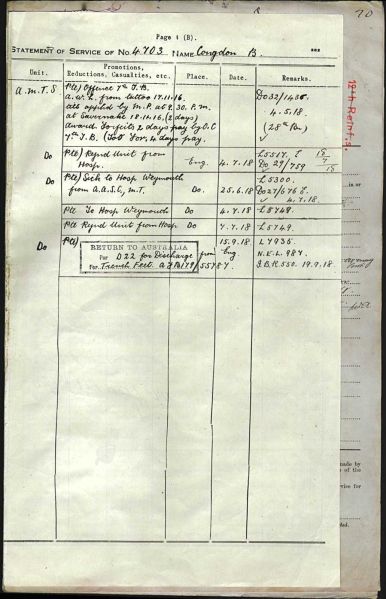 70
Page 1 (B).
STATEMENT OF SERVICE OF No. 4703 NAME Congdon B.
Unit.
Promotions, Reductions, Casualties, etc.
Place.
Date.
Remarks.
A.M.T.S
Pte) Offence 7th T.B.
a.w.l. from tattoo 17.11.16.
till applied by M.P. at 9.30. P.m.
at Savernake 18.11.16. (2 days)
Award Forfeits 2 days pay by O.C
7th T.B. (Tot For. 4 days pay.
Do32/1436.
4.5.18.
(28th Bn)
Do
Pte) Rejnd Unit from
Hosp.
Eng.
4.7.18
L5517.
Do 29/759
18/7/18
Do
Pte) Sick to Hosp Weymouth
from A.A.S.C, M.T.
Do.
25.6.18
L5300.
Do27/676
4.7.18.
Pte To Hosp Weymouth
Do
4.7.18
L5749.
Pte Rejnd Unit from Hosp
Do
7.7.18
L5749.
Do
Pte)
RETURN TO AUSTRALIA
For D22 for Discharge from
For Trench Feet.
Eng
15.9.18.
L7936.
N.E.L. 987.
I.B.R 550. 19.9.18.
12th Reinfts.
is or
made by
of the
service for